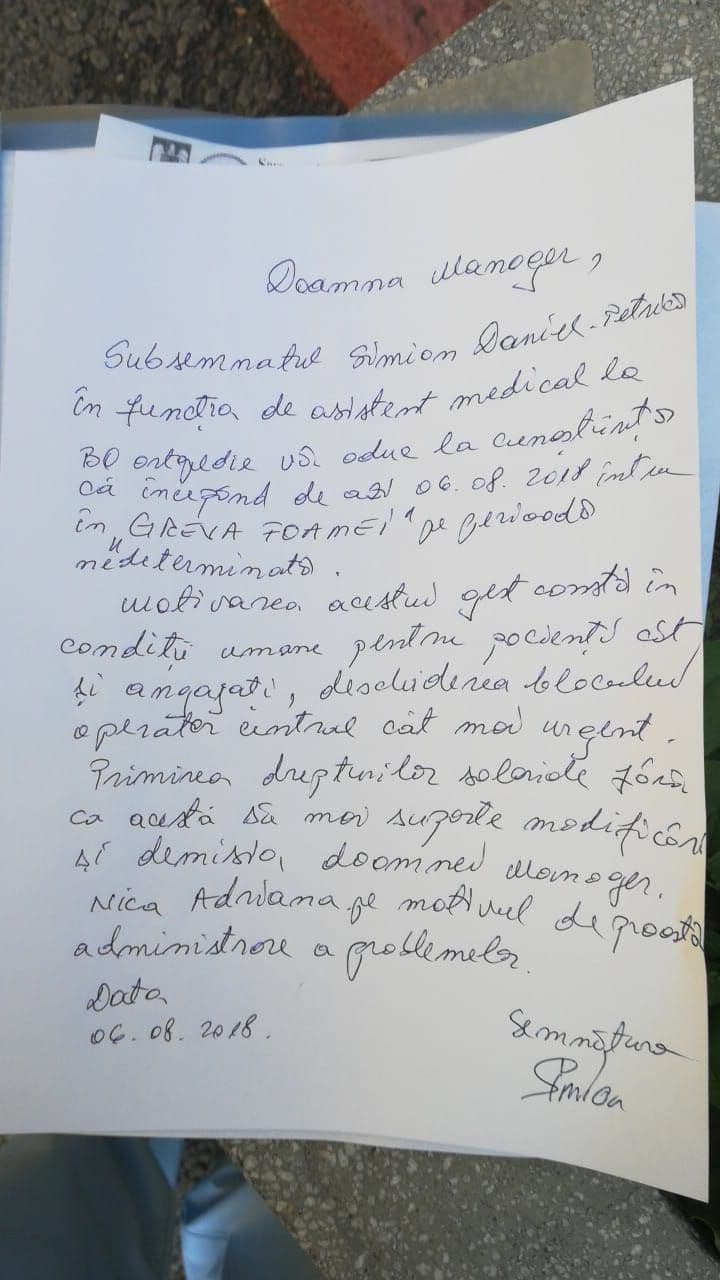 Doamna Manager,
Subsemnatul Simion Daniel-Petrică
în funcția de asistent medical la
BO ortopedie vă aduc la cunoștință
că începând de azi 06.08.2018 intru
în „GREVA FOAMEI" pe perioadă
nedeterminată.
Motivarea acestui gest constă în
condiții umane pentru pacienți cât
și angajați, deschiderea blocului
operator central cât mai urgent.
Primirea drepturilor salariale fără
ca acestă să mai suporte modificări
și demisia, doamnei Manager.
Nica Adriana pe motivul de proastă
administrare a problemelor.
Data
06.08.2018.
Semnătura
Simion